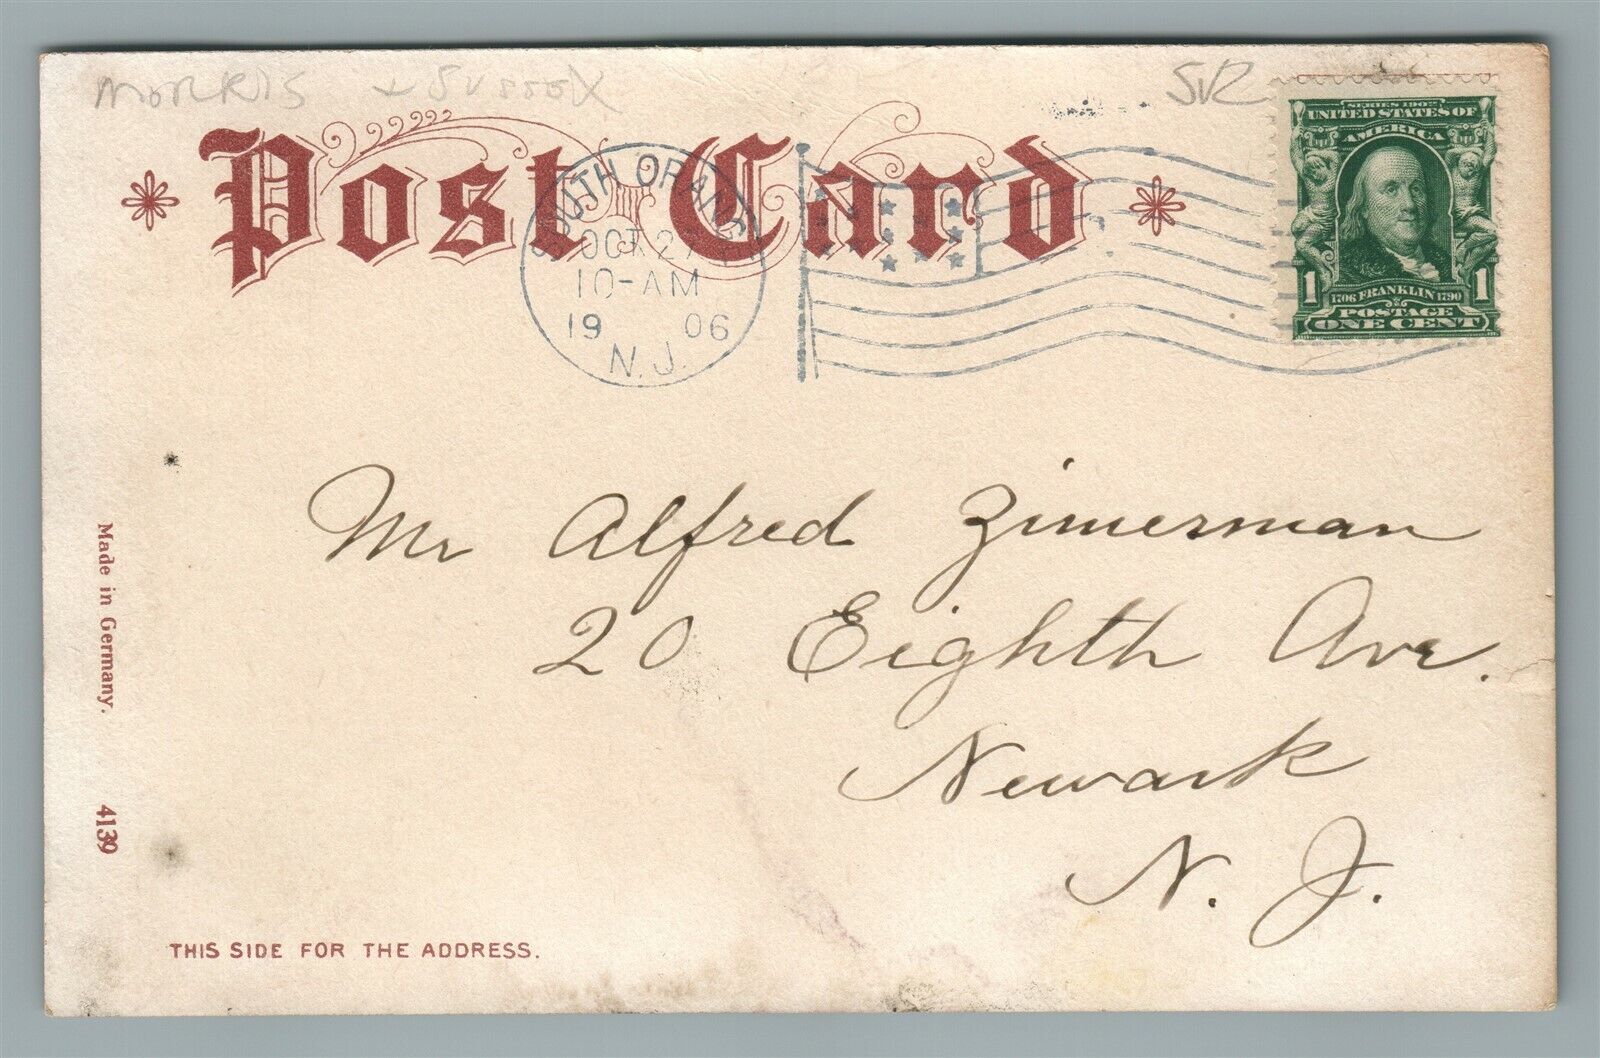 MORRIS + SUSSEX
Post Card
SOUTH ORANGE
OCT 27
10-AM
19 06
N.J.
SERIES 1902
UNITED STATES OF
AMERICA
1 1706 FRANKLIN 1790 1
POSTAGE
ONE CENT
Mr Alfred Zimmerman
20 Eighth Ave.
Newark
N. J.
Made in Germany.
4139
THIS SIDE FOR THE ADDRESS.